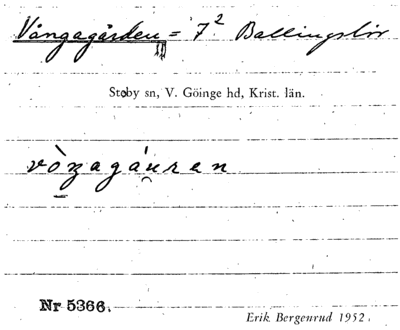 Vångagården = 7² Ballingslöv
Stoby sn, V. Göinge hd, Krist. län.
vò̱ŋagáu̯ren
Nr 5366.
Erik Bergenrud 1952.